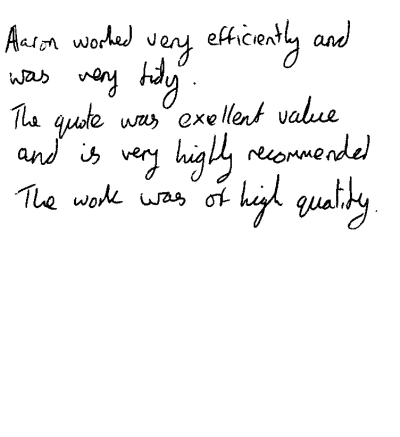 Aaron worked very efficiently and
was very tidy.
The quote was exellent value
and is very highly recommended
The work was of high quality.